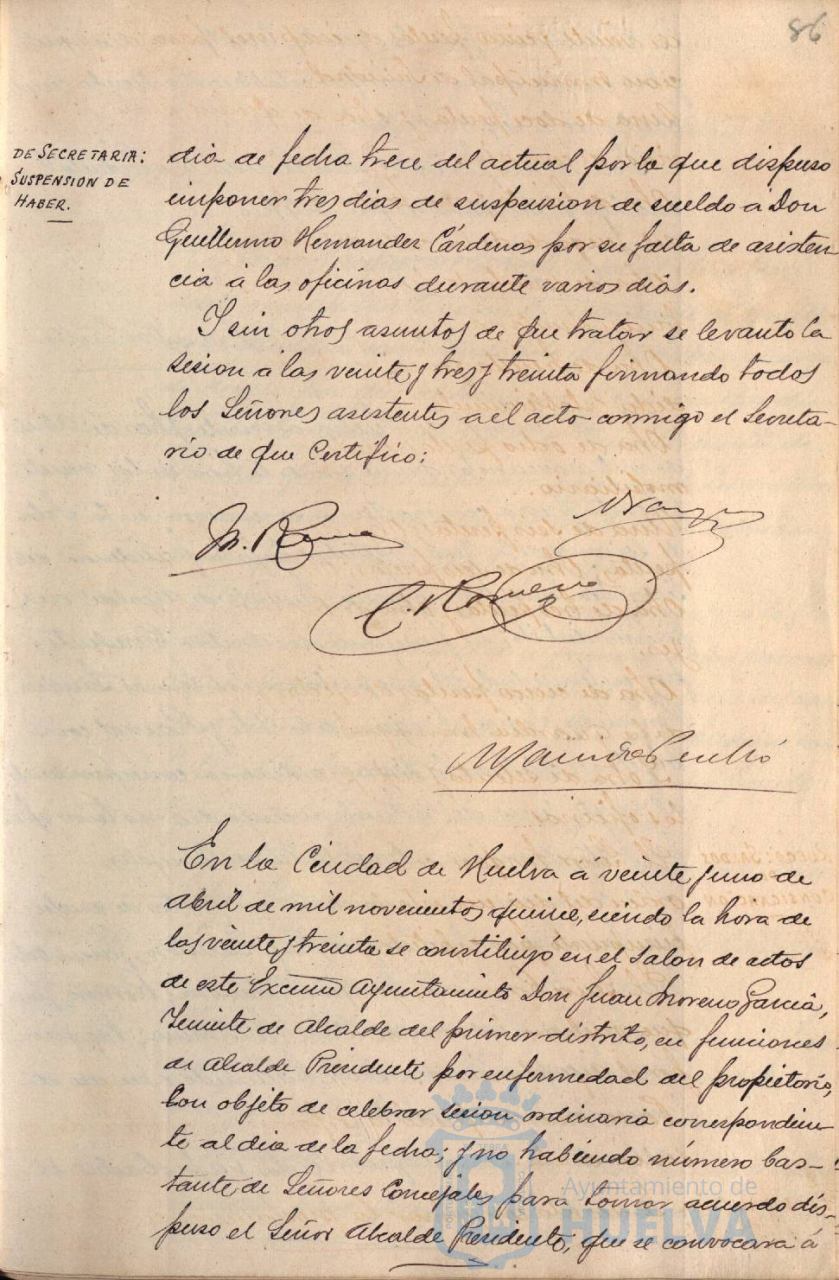 86
DE SECRETARIA:
SUSPENSION DE
HABER.
dia de fecha trece del actual por la que dispuso
imponer tres dias de suspension de sueldo á Don
Guillermo Hernandez Cárdenas por su falta de asisten
cia á las oficinas durante varios dias.
Y sin otros asuntos de que tratar se levanto la
sesion á las veinte y tres y treinta firmando todos
los Señores asistentes a el acto conmigo el Secreta-
rio de que Certifico:
En la Ciudad de Huelva á veinte y uno de
Abril de mil novecientos quince, siendo la hora de
las veinte y treinta se constituyó en el salon de actos
de este Excmo Ayuntamiento Don Juan Moreno Garcia,
Teniente de Alcalde del primer distrito, en funciones
de Alcalde Presidente por enfermedad del propietario,
con objeto de celebrar sesion ordinaria correspondien
te al dia de la fecha; y no habiendo número bas-
tante de Señores Concejales para tomar acuerdo dis-
puso el Señor Alcalde Presidente, que se convocara á
Ayuntamiento de
HUELVA